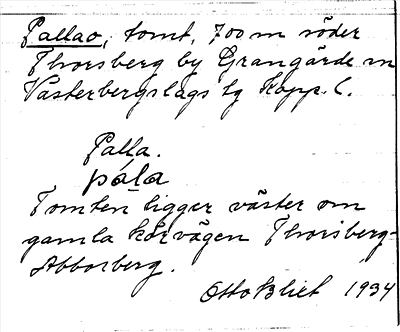 Pallao, tomt, 700 m söder
Thorsberg by Grangärde sn
Västerbergslags tg Kopp. l.
Palla.
pála
Tomten ligger väster om
gamla körvägen Thorsberg-
Abborberg.
Otto Blixt 1934